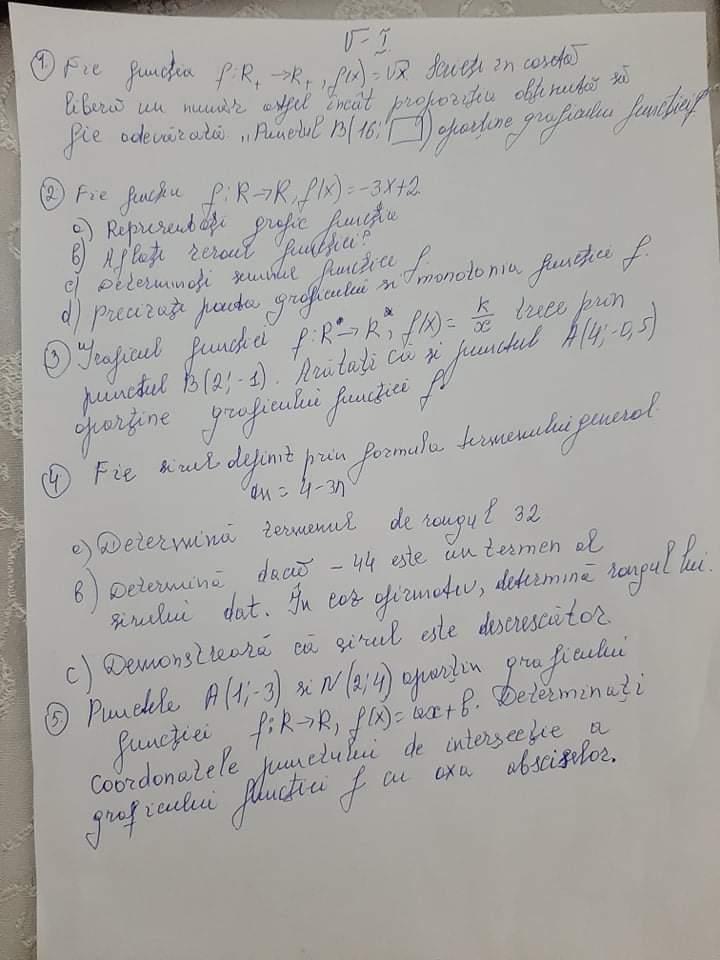 V-I
① Fie funcția f:R₊→R₊, f(x)=√x. Scrieți în casetă
liberă un număr astfel încât propoziția obținută să
fie adevărată „Punctul B(16; □) aparține graficului funcției f"
② Fie funcția f:R→R, f(x)=-3x+2
a) Reprezentați grafic funcția
b) Aflați zeroul funcției?
c) Determinați semnul funcției f.
d) precizați panta graficului și monotonia funcției f.
③ Graficul funcției f:R*→R*, f(x)=k/x trece prin
punctul B(2;-1). Arătați că și punctul A(4;-0,5)
aparține graficului funcției f.
④ Fie șirul definit prin formula termenului general
an=4-3n
a) Determină termenul de rangul 32
b) Determină dacă -44 este un termen al
șirului dat. În caz afirmativ, determină rangul lui.
c) Demonstrează că șirul este descrescător
⑤ Punctele A(1;-3) și N(2;4) aparțin graficului
funcției f:R→R, f(x)=ax+b. Determinați
coordonatele punctului de intersecție a
graficului funcției f cu axa absciselor.